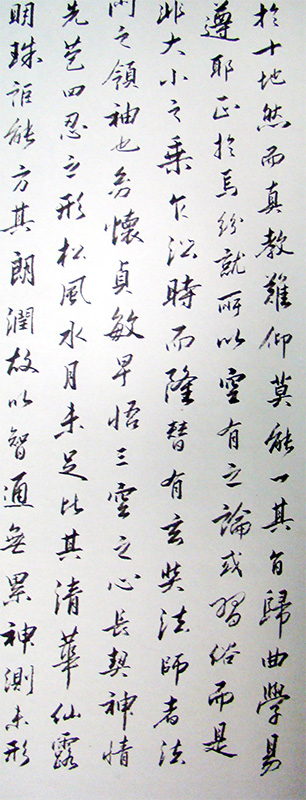 於十地然而真教難仰莫能一其旨歸曲學易
遵耶正於焉紛就所以空有之論或習俗而是
非大小之乘乍沿時而隆替有玄奘法師者法
門之領袖也幼懷貞敏早悟三空之心長契神情
先苞四忍之形松風水月未足比其清華仙露
明珠詎能方其朗潤故以智通無累神測未形